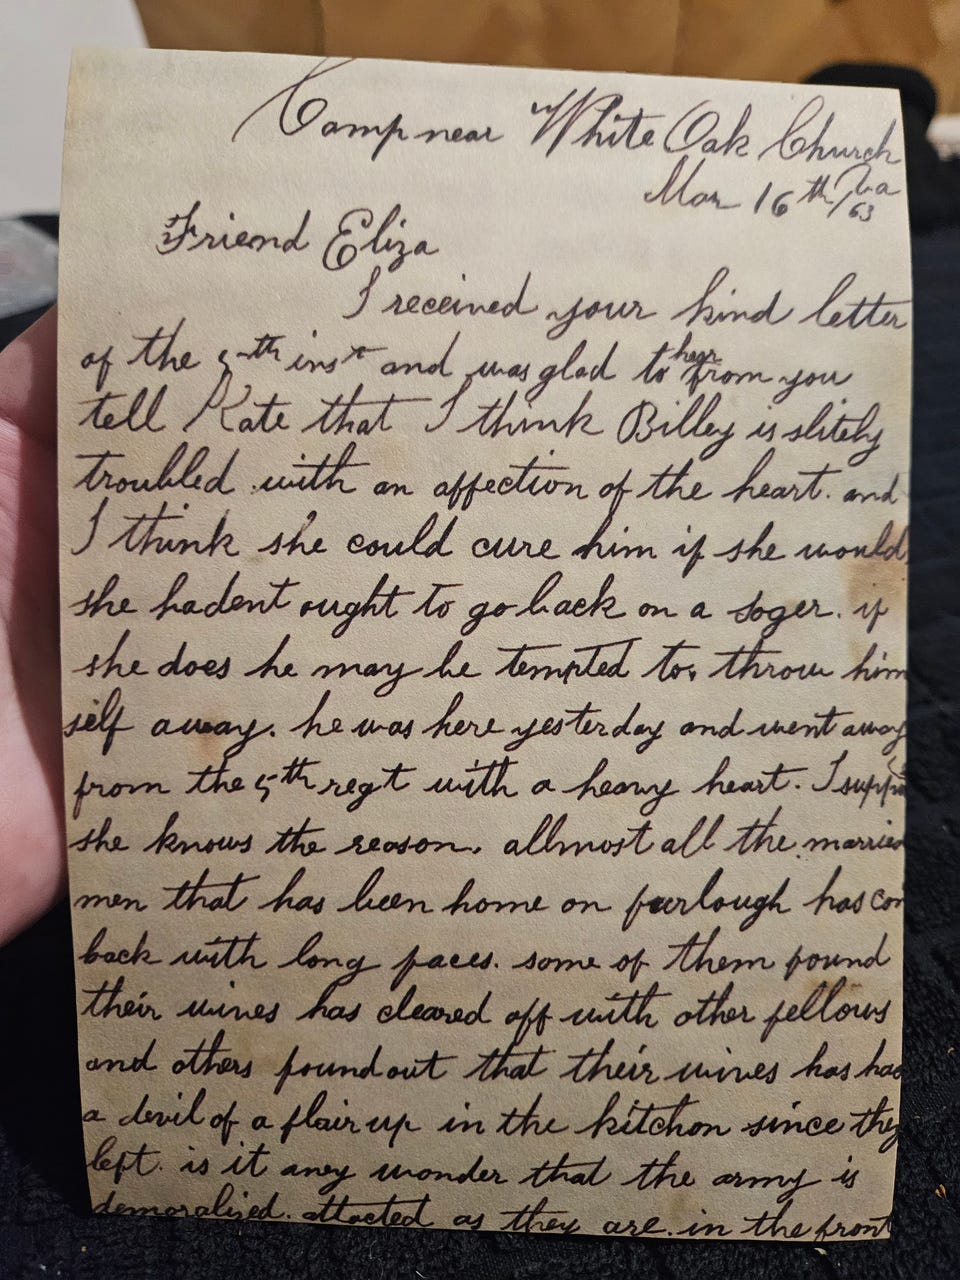 Camp near White Oak Church
Mar 16th/63 Va
Friend Eliza
I received your kind letter
of the 5th inst and was glad to hear from you
tell Kate that I think Billey is slitely
troubled with an affection of the heart. and
I think she could cure him if she would
she hadent ought to go back on a soger. if
she does he may be tempted to throw him
self away. he was here yesterday and went away
from the 5th regt with a heavy heart. I
she knows the reason. allmost all the married
men that has been home on furlough has
back with long faces. some of them found
their wives has cleared off with other fellows
and others found out that their wives has had
a devil of a flair up in the kitchon since they
left. is it aney wonder that the army is
demoralized. attacted as they are. in the front